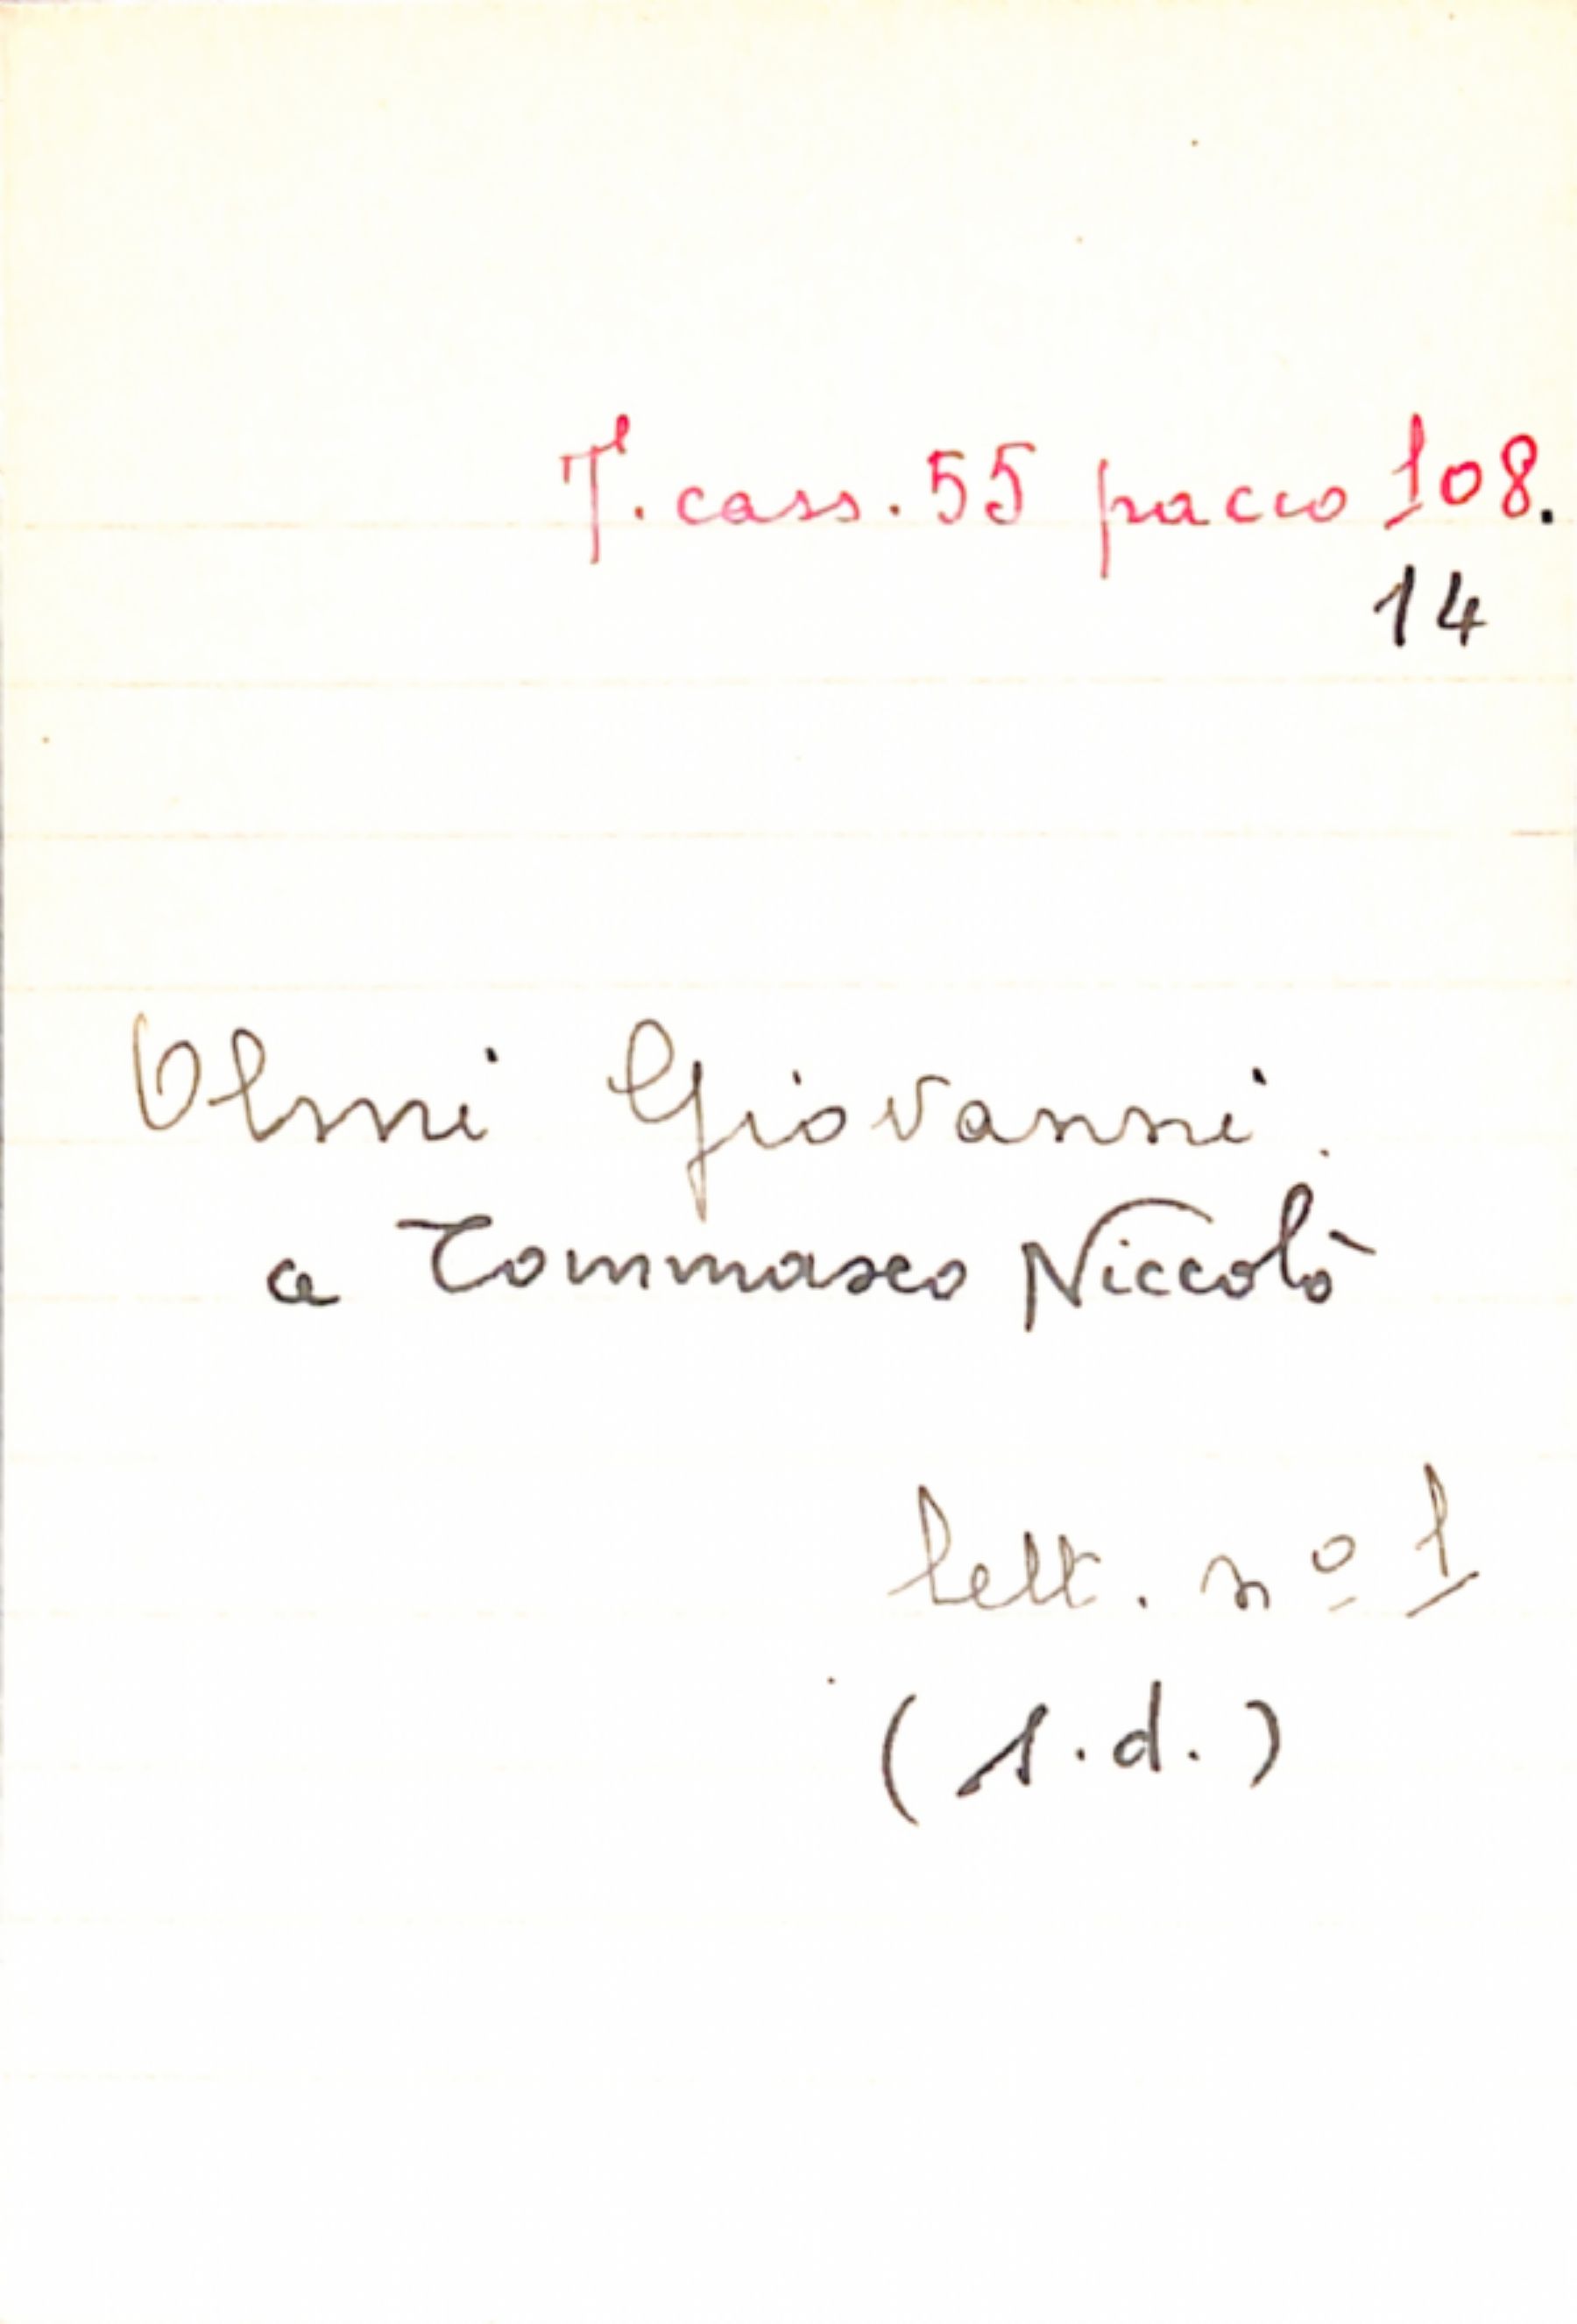 T. cass. 55 pacco 108.
14
Olmi Giovanni.
a Tommaseo Niccolò
lett. nº 1
(s.d.)